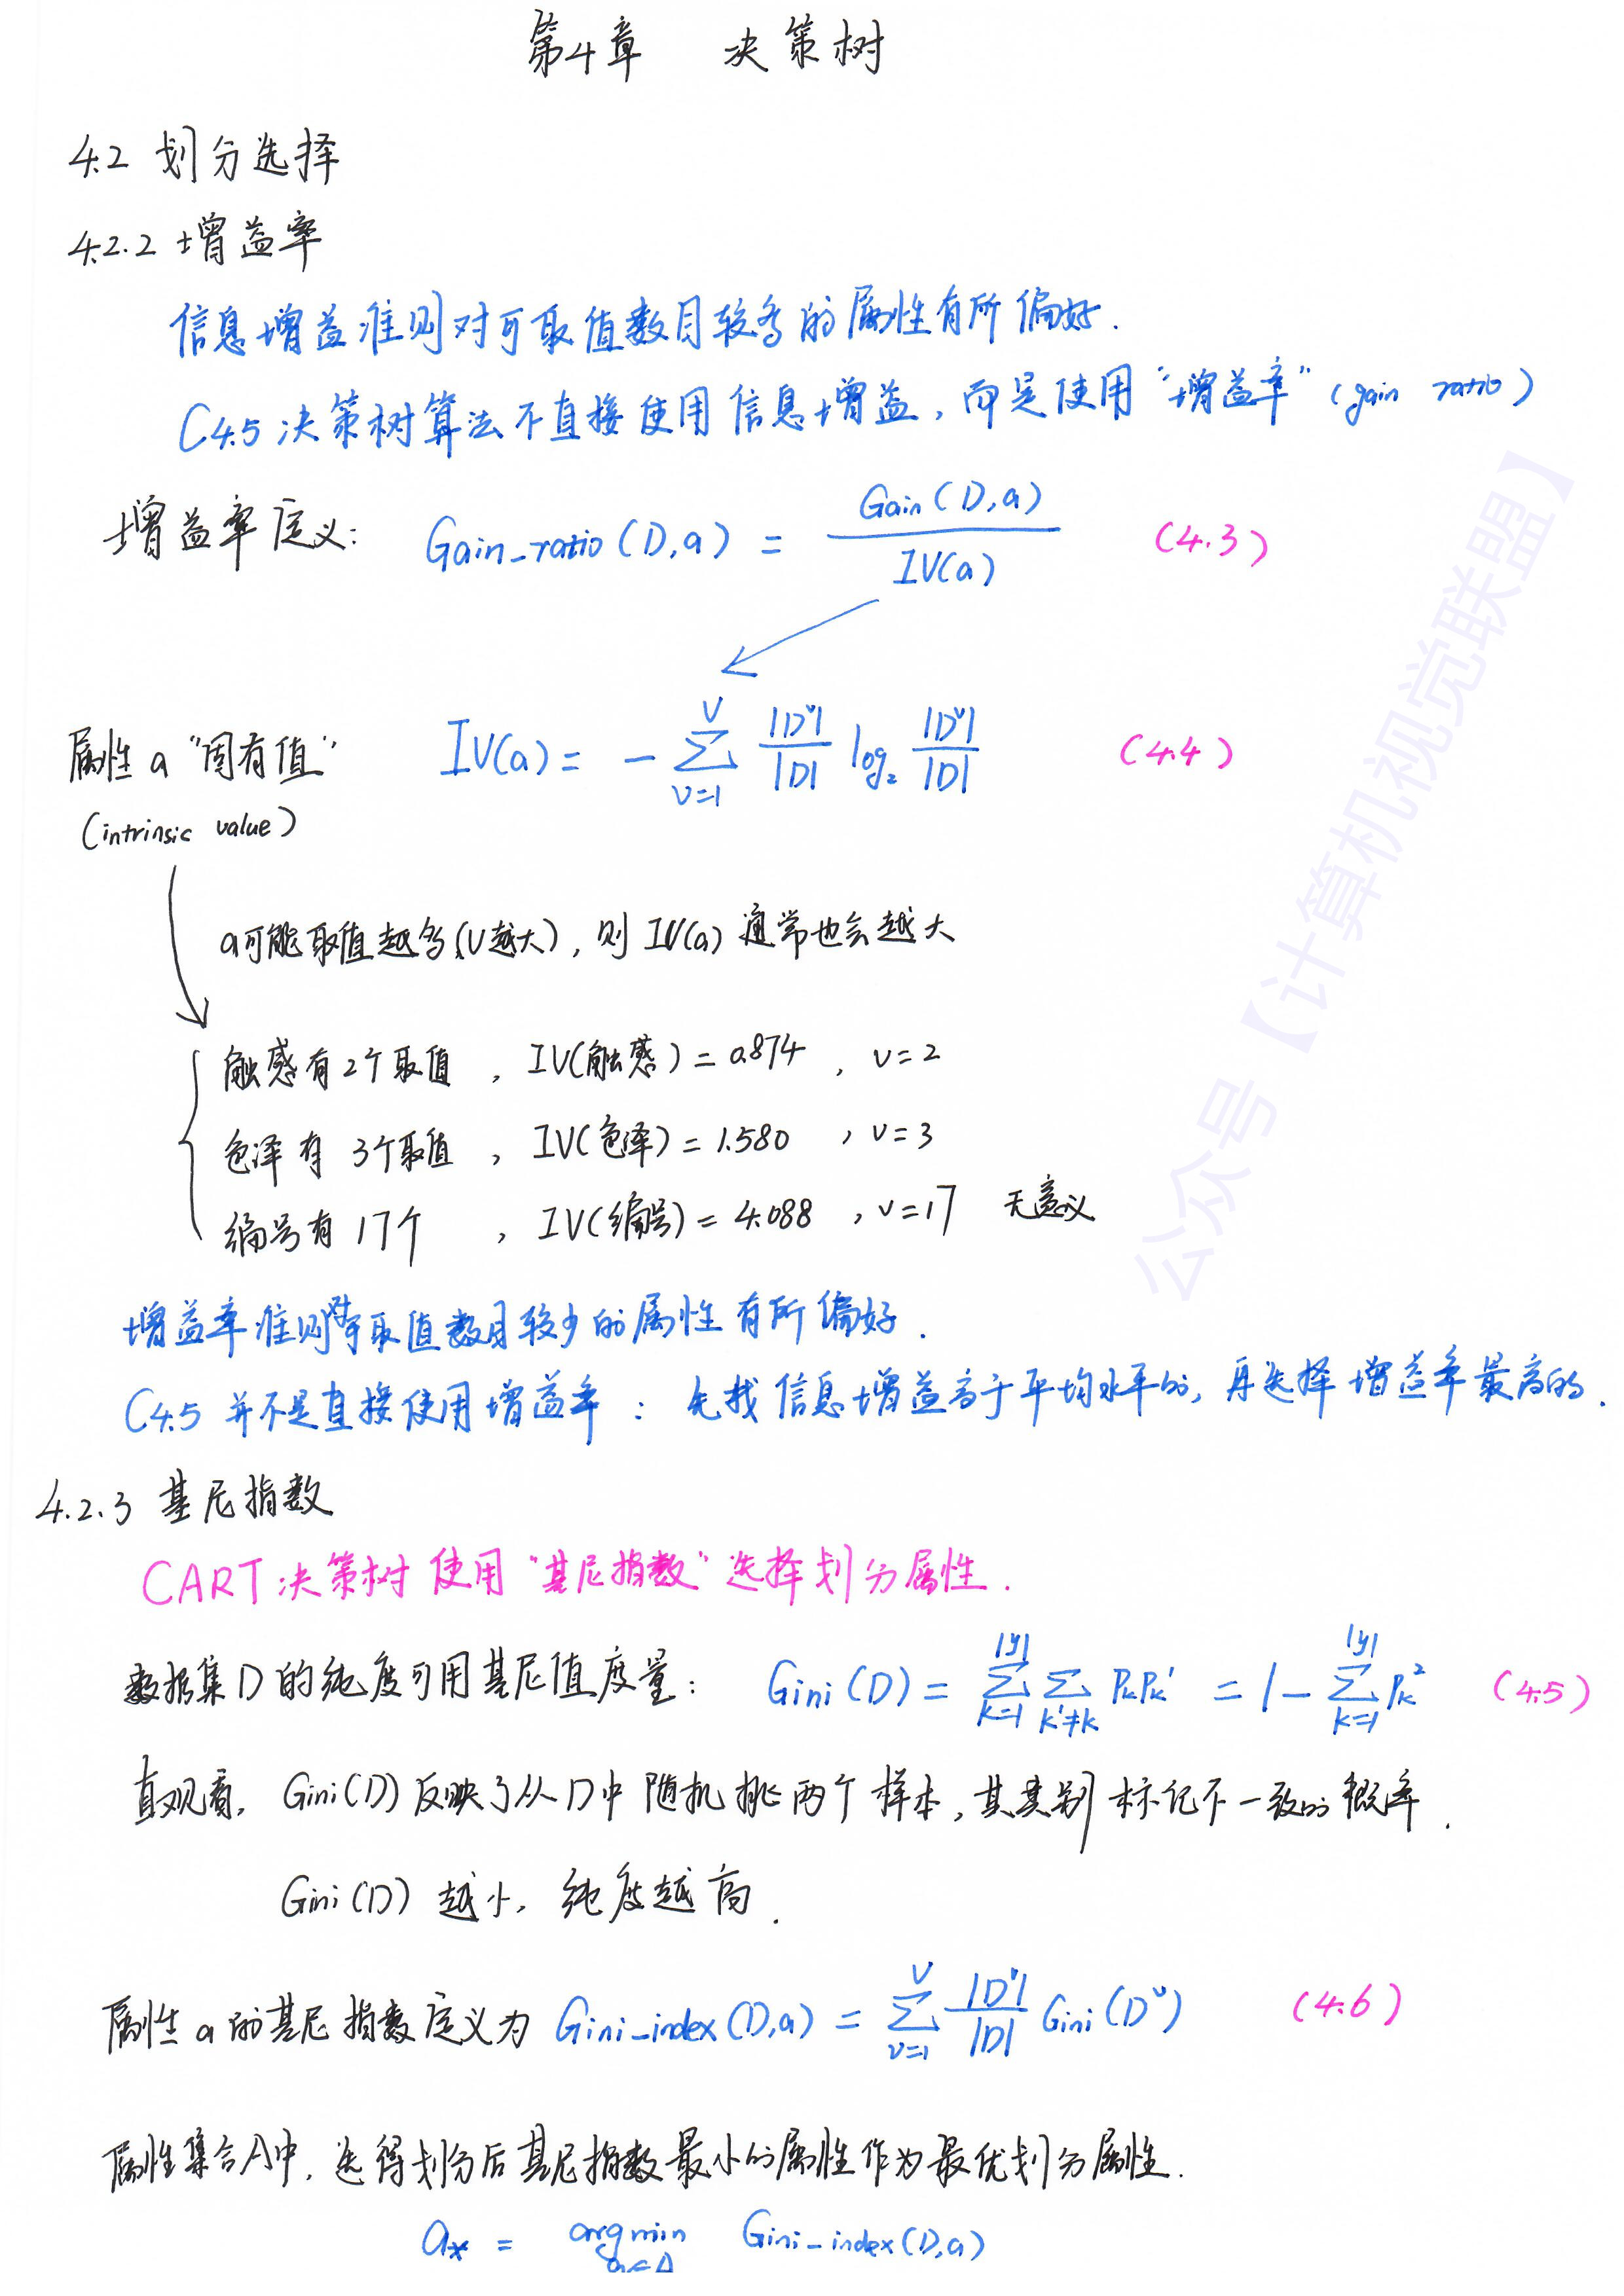 第4章 决策树
4.2 划分选择
4.2.2 增益率
信息增益准则对可取值数目较多的属性有所偏好.
C4.5决策树算法不直接使用信息增益,而是使用"增益率"(gain ratio)
增益率定义: Gain_ratio(D,a) = Gain(D,a) / IV(a) (4.3)
属性a"固有值" IV(a) = - ∑_{v=1}^{V} |D^v|/|D| log₂ |D^v|/|D| (4.4)
(intrinsic value)
a可能取值越多(V越大),则IV(a)通常也会越大
触感有2个取值, IV(触感)=0.874, v=2
色泽有3个取值, IV(色泽)=1.580, v=3
编号有17个, IV(编号)=4.088, v=17 无意义
增益率准则对可取值数目较少的属性有所偏好.
C4.5并不是直接使用增益率: 先找信息增益高于平均水平的,再选择增益率最高的.
4.2.3 基尼指数
CART决策树使用"基尼指数"选择划分属性.
数据集D的纯度可用基尼值度量: Gini(D) = ∑_{k=1}^{|y|} ∑_{k'≠k} P_k P_k' = 1 - ∑_{k=1}^{|y|} P_k² (4.5)
直观看, Gini(D)反映了从D中随机挑两个样本,其类别标记不一致的概率.
Gini(D)越小,纯度越高.
属性a的基尼指数定义为 Gini_index(D,a) = ∑_{v=1}^{V} |D^v|/|D| Gini(D^v) (4.6)
属性集合A中,选得划分后基尼指数最小的属性作为最优划分属性.
a* = argmin_{a∈A} Gini_index(D,a)
公众号【计算机视觉联盟】